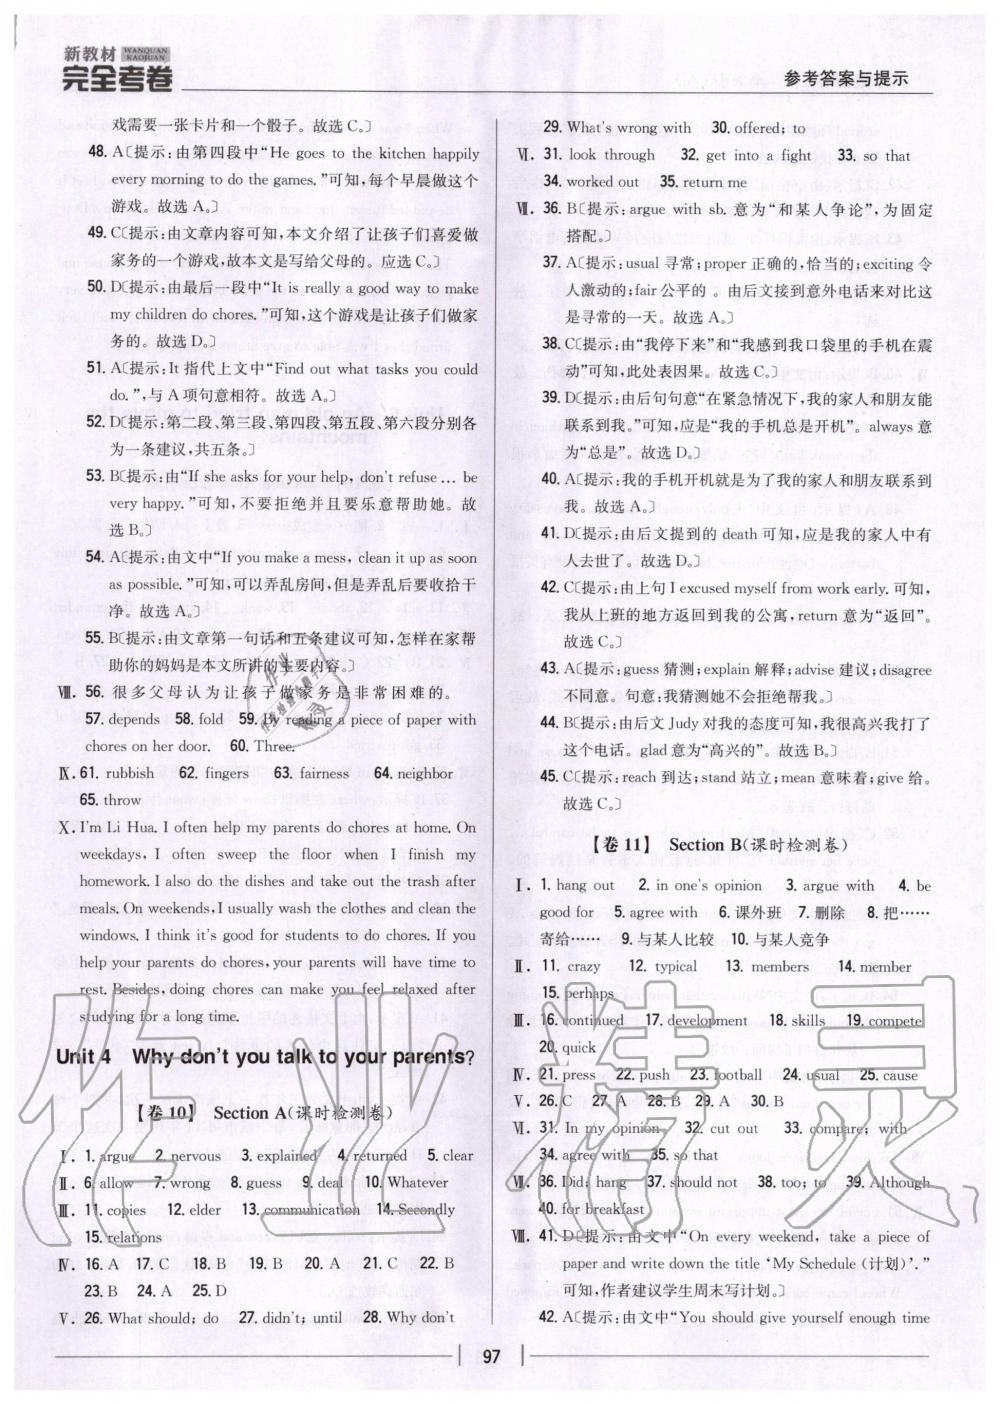 新教材 WANQUAN KAOJUAN
完全考卷
参考答案与提示
戏需要一张卡片和一个骰子。故选C。〕
48. A〔提示:由第四段中“He goes to the kitchen happily
every morning to do the games.”可知,每个早晨做这个
游戏。故选A。〕
49. C〔提示:由文章内容可知,本文介绍了让孩子们喜爱做
家务的一个游戏,故本文是写给父母的。应选C。〕
50. D〔提示:由最后一段中“It is really a good way to make
my children do chores.”可知,这个游戏是让孩子们做家
务的。故选D。〕
51. A〔提示:It 指代上文中“Find out what tasks you could
do.”,与A项句意相符。故选A。〕
52. D〔提示:第二段、第三段、第四段、第五段、第六段分别各
为一条建议,共五条。〕
53. B〔提示:由“If she asks for your help, don't refuse … be
very happy.”可知,不要拒绝并且要乐意帮助她。故
选B。〕
54. A〔提示:由文中“If you make a mess, clean it up as soon
as possible.”可知,可以弄乱房间,但是弄乱后要收拾干
净。故选A。〕
55. B〔提示:由文章第一句话和五条建议可知,怎样在家帮
助你的妈妈是本文所讲的主要内容。〕
Ⅷ. 56. 很多父母认为让孩子做家务是非常困难的。
57. depends 58. fold 59. By reading a piece of paper with
chores on her door. 60. Three.
Ⅸ. 61. rubbish 62. fingers 63. fairness 64. neighbor
65. throw
Ⅹ. I'm Li Hua. I often help my parents do chores at home. On
weekdays, I often sweep the floor when I finish my
homework. I also do the dishes and take out the trash after
meals. On weekends, I usually wash the clothes and clean the
windows. I think it's good for students to do chores. If you
help your parents do chores, your parents will have time to
rest. Besides, doing chores can make you feel relaxed after
studying for a long time.
Unit 4 Why don't you talk to your parents?
【卷 10】 Section A(课时检测卷)
Ⅰ. 1. argue 2. nervous 3. explained 4. returned 5. clear
Ⅱ. 6. allow 7. wrong 8. guess 9. deal 10. Whatever
Ⅲ. 11. copies 12. elder 13. communication 14. Secondly
15. relations
Ⅳ. 16. A 17. C 18. B 19. B 20. A 21. C 22. B
23. B 24. A 25. D
Ⅴ. 26. What should; do 27. didn't; until 28. Why don't
29. What's wrong with 30. offered; to
Ⅵ. 31. look through 32. get into a fight 33. so that
34. worked out 35. return me
Ⅶ. 36. B〔提示:argue with sb. 意为“和某人争论”,为固定
搭配。〕
37. A〔提示:usual 寻常;proper 正确的,恰当的;exciting 令
人激动的;fair 公平的 。由后文接到意外电话来对比这
是寻常的一天。故选A。〕
38. C〔提示:由“我停下来”和“我感到我口袋里的手机在震
动”可知,此处表因果。故选C。〕
39. D〔提示:由后句句意“在紧急情况下,我的家人和朋友能
联系到我。”可知,应是“我的手机总是开机”。always 意
为“总是”。故选D。〕
40. A〔提示:我的手机开机就是为了我的家人和朋友联系到
我。故选A。〕
41. D〔提示:由后文提到的 death 可知,应是我的家人中有
人去世了。故选D。〕
42. C〔提示:由上句 I excused myself from work early. 可知,
我从上班的地方返回到我的公寓,return 意为“返回”。
故选C。〕
43. A〔提示:guess 猜测;explain 解释;advise 建议;disagree
不同意。句意:我猜测她不会拒绝帮我。〕
44. B〔提示:由后文 Judy 对我的态度可知,我很高兴我打了
这个电话。glad 意为“高兴的”。故选B。〕
45. C〔提示:reach 到达;stand 站立;mean 意味着;give 给。
故选C。〕
【卷 11】 Section B(课时检测卷)
Ⅰ. 1. hang out 2. in one's opinion 3. argue with 4. be
good for 5. agree with 6. 课外班 7. 删除 8. 把……
寄给…… 9. 与某人比较 10. 与某人竞争
Ⅱ. 11. crazy 12. typical 13. members 14. member
15. perhaps
Ⅲ. 16. continued 17. development 18. skills 19. compete
20. quick
Ⅳ. 21. press 22. push 23. football 24. usual 25. cause
Ⅴ. 26. C 27. A 28. B 29. A 30. B
Ⅵ. 31. In my opinion 32. cut out 33. compare; with
34. agree with 35. so that
Ⅶ. 36. Did; hang 37. should not 38. too; to 39. Although
40. for breakfast
Ⅷ. 41. D〔提示:由文中“On every weekend, take a piece of
paper and write down the title ‘My Schedule (计划)’.”
可知,作者建议学生周末写计划。〕
42. A〔提示:由文中“You should give yourself enough time
97